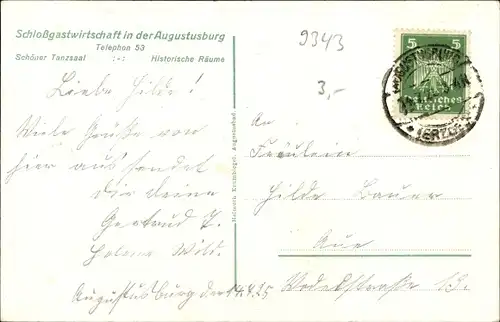 Schloßgastwirtschaft in der Augustusburg
Telephon 53
Schöner Tanzsaal :-: Historische Räume
9343
3,-
5 5
Deutsches
Reich
Liebe Hilde!
Viele Grüße von
hier aus sendet
Dir deine
Gertrud
Augustusburg den 14.4.25
An
Fräulein
Hilde Bauer
Aue
13.
Augustusburg